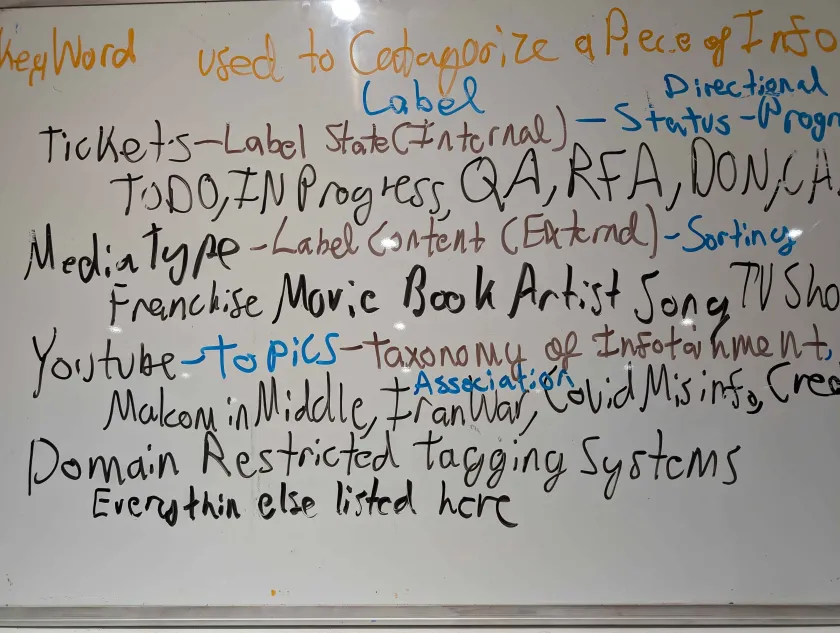 KeyWord used to Catagorize a Piece of Info
Label Directional
Tickets-Label State(Internal)-Status-Progr
TODO, IN Progress, QA, RFA, DON, CA
Media Type-Label Content (External)-Sorting
Franchise Movie Book Artist Song TV Sho
Youtube-Topics-Taxonomy of Infotainment,
Association
Malcom in Middle, Iran War, Covid Misinfo, Crea
Domain Restricted Tagging Systems
Everythin else listed here